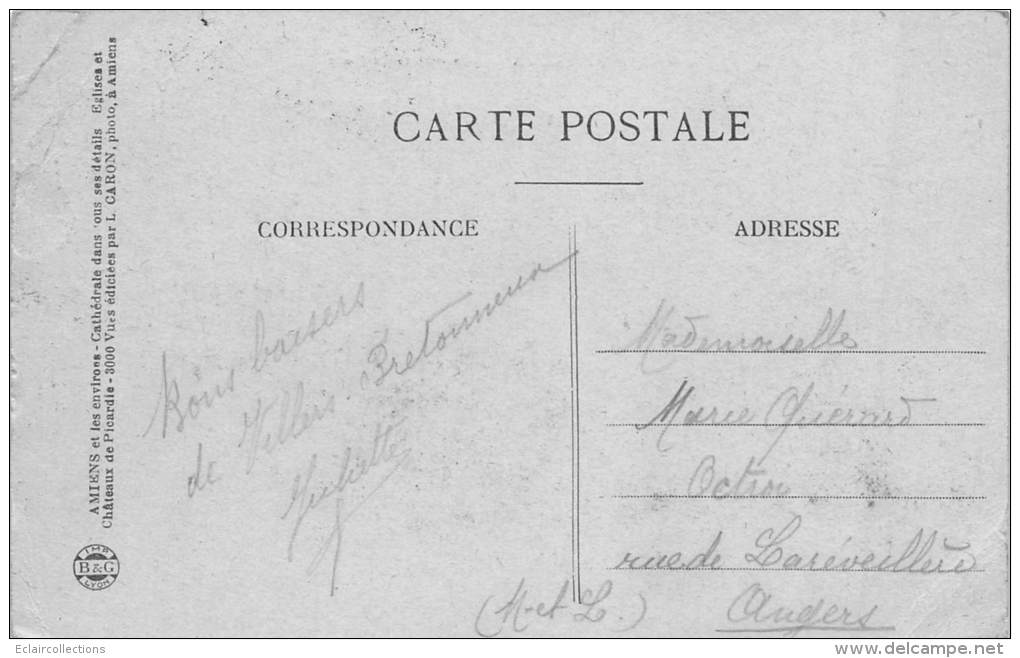 CARTE POSTALE
CORRESPONDANCE
ADRESSE
AMIENS et les environs - Cathédrale dans tous ses détails Eglises et
Châteaux de Picardie - 3000 Vues édiciées par L. CARON, photo, à Amiens
IMP
B&G
LYON
Bons baisers
de Villers-Bretonneux
Juliette
Mademoiselle
Marie Guérard
Octroi
rue de Laréveillère
Angers
(M-et L.)
Eclaircollections
delcampe.net